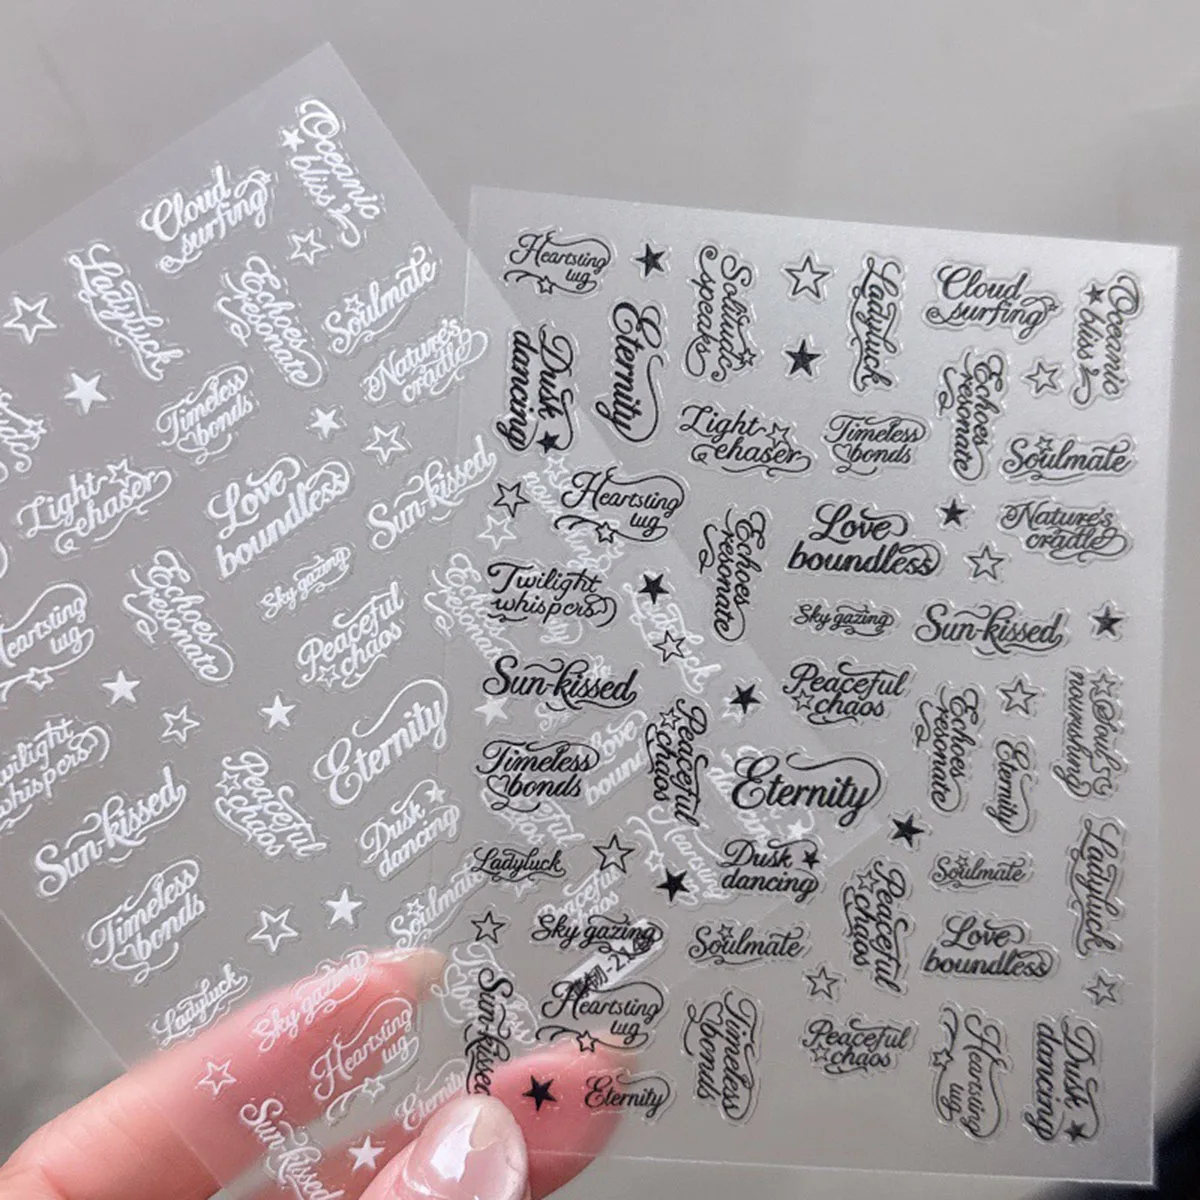 Oceanic
bliss
Cloud
surfing
Ladyluck
Echoes
resonate
Soulmate
Nature's
cradle
Timeless
bonds
Light
chaser
Love
boundless
Sun-kissed
Sky gazing
Echoes
resonate
Peaceful
chaos
Heartsting
tug
Twilight
whispers
Eternity
Sun-kissed
Peaceful
chaos
Dusk
dancing
Timeless
bonds
Soulmate
Ladyluck
Sky gazing
Heartsting
tug
Eternity
Sun-kissed
Heartsting
tug
Solitude
speaks
Ladyluck
Cloud
surfing
Oceanic
bliss
Eternity
Dusk
dancing
Light
chaser
Timeless
bonds
Echoes
resonate
Soulmate
Heartsting
tug
Echoes
resonate
Love
boundless
Nature's
cradle
Twilight
whispers
Sky gazing
Sun-kissed
Sun-kissed
Peaceful
chaos
Peaceful
chaos
Echoes
resonate
Eternity
Soul
nourishing
Timeless
bonds
Eternity
Ladyluck
Dusk
dancing
Peaceful
chaos
Soulmate
Ladyluck
Sky gazing
Soulmate
Love
boundless
Sun-kissed
Heartsting
tug
Timeless
bonds
Peaceful
chaos
Heartsting
tug
Dusk
dancing
Eternity